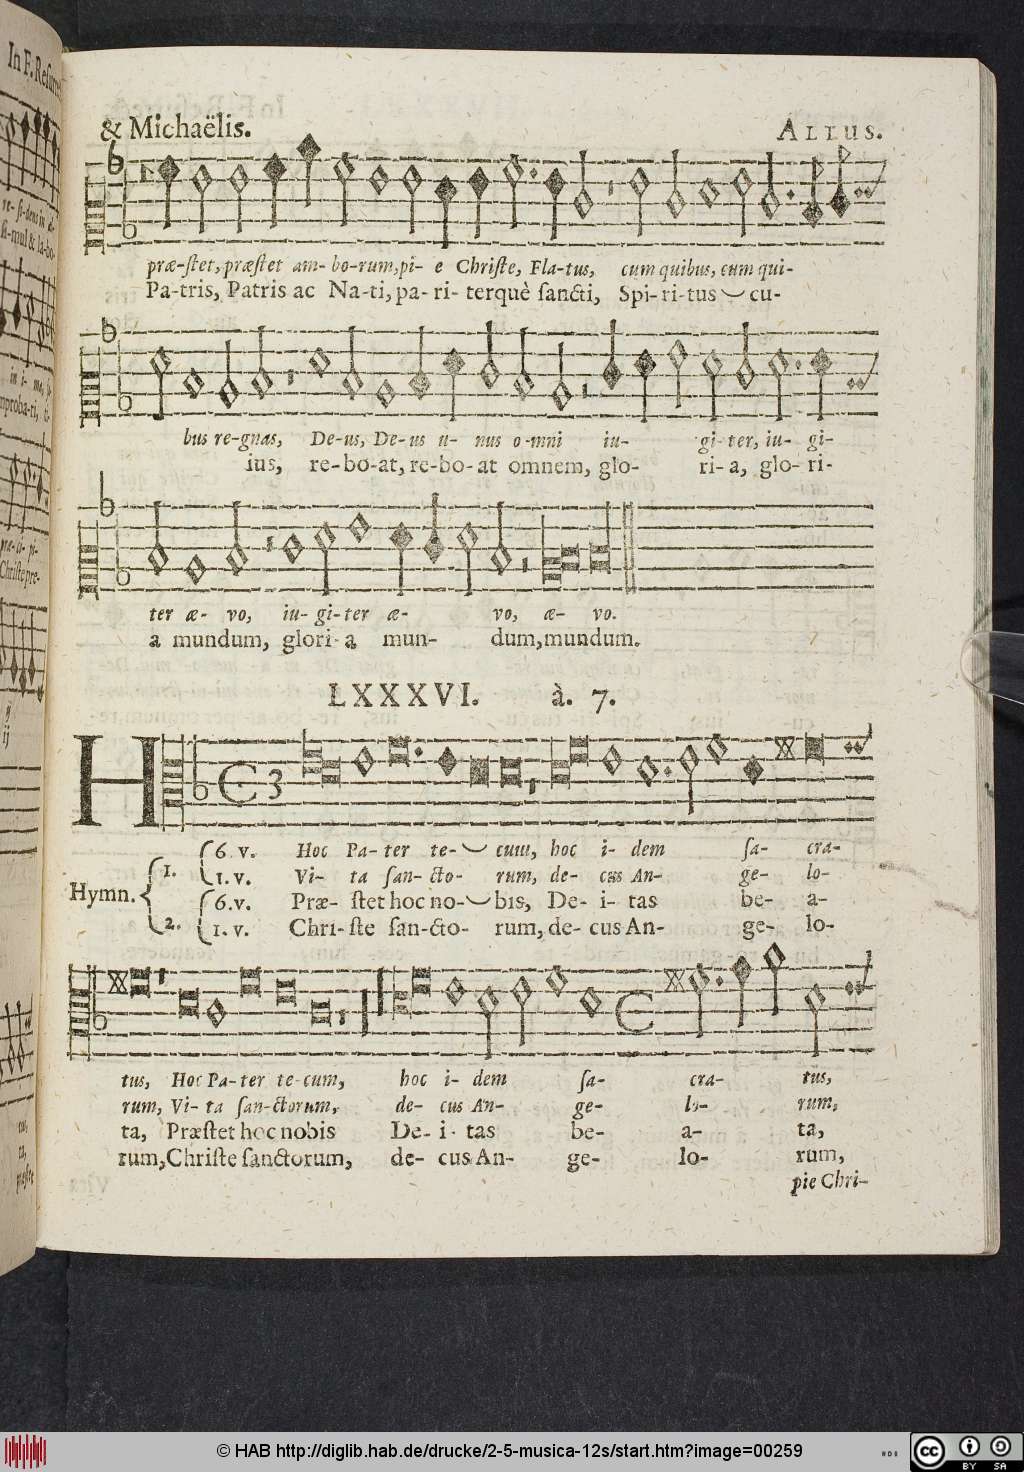 & Michaëlis.
ALTUS.
præ-stet, præstet am- bo-rum, pi- e Christe, Fla-tus, cum quibus, cum qui-
Pa-tris, Patris ac Na-ti, pa- ri- terquè sancti, Spi-ri-tus cu-
bus re-gnas, De-us, De-us u- nus o-mni iu- gi-ter, iu- gi-
ius, re-bo-at, re-bo-at omnem, glo- ri-a, glo-ri-
ter æ- vo, iu-gi-ter æ- vo, æ- vo.
a mundum, glori-a mun- dum, mundum.
LXXXVI. à. 7.
H
C 3
6. v. Hoc Pa-ter te- cum, hoc i- dem sa- cra-
1. 1. v. Vi- ta san-cto- rum, de- cus An- ge- lo-
Hymn. 6. v. Præ- stet hoc no- bis, De- i- tas be- a-
2. 1. v. Chri-ste san-cto- rum, de- cus An- ge- lo-
tus, Hoc Pa-ter te-cum, hoc i- dem sa- cra- tus,
rum, Vi-ta san-ctorum, de- cus An- ge- lo- rum,
ta, Præstet hoc nobis De- i- tas be- a- ta,
rum, Christe sanctorum, de- cus An- ge- lo- rum,
pie Chri-
© HAB http://diglib.hab.de/drucke/2-5-musica-12s/start.htm?image=00259
cc BY SA